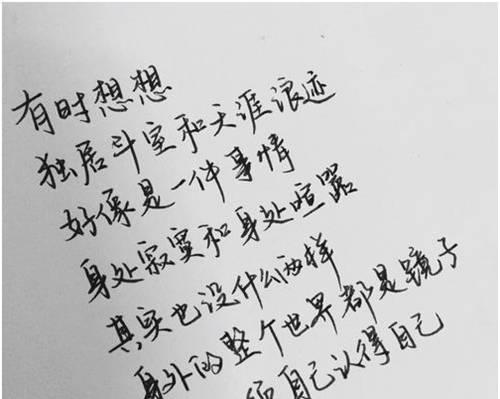 有时想想
独居斗室和天涯浪迹
好像是一件事情
身处寂寞和身处喧嚣
其实也没什么两样
身外的整个世界都是镜子
自己认得自己